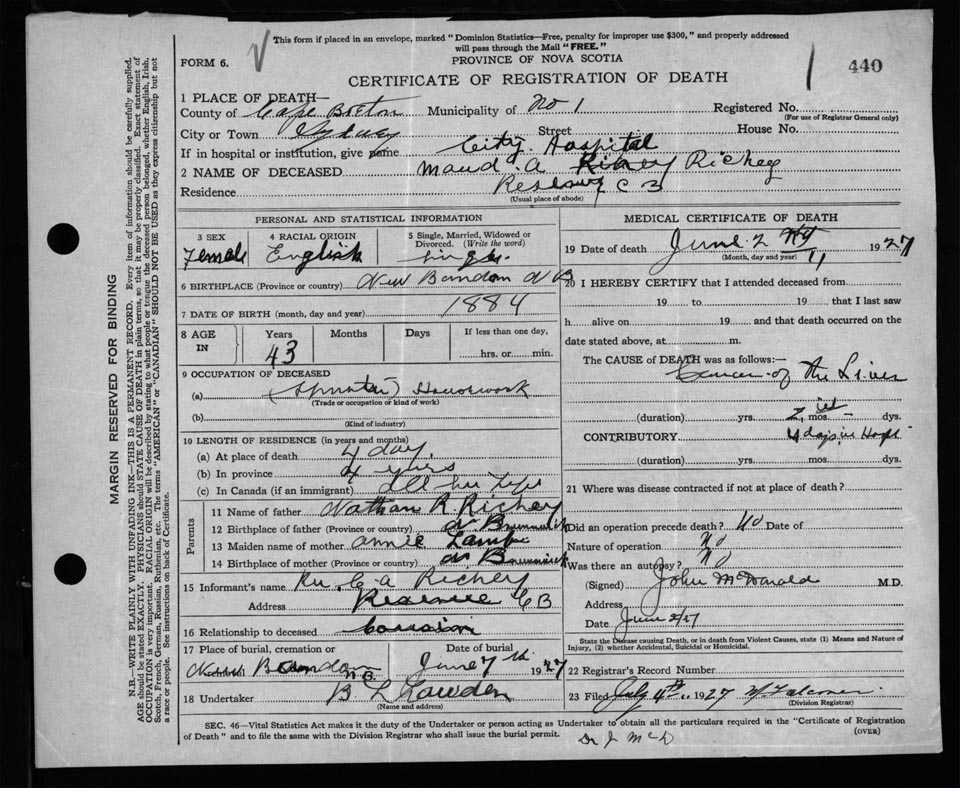 This form if placed in an envelope, marked "Dominion Statistics—Free, penalty for improper use $300," and properly addressed
will pass through the Mail "FREE."
FORM 6.
PROVINCE OF NOVA SCOTIA
440
CERTIFICATE OF REGISTRATION OF DEATH
1 PLACE OF DEATH—
County of Cape Breton Municipality of No 1 Registered No.
(For use of Registrar General only)
City or Town Sydney Street House No.
If in hospital or institution, give name City Hospital
2 NAME OF DECEASED Maud. A Richey
Residence Reserve C B
(Usual place of abode)
PERSONAL AND STATISTICAL INFORMATION
3 SEX 4 RACIAL ORIGIN 5 Single, Married, Widowed or Divorced. (Write the word)
Female English Single.
6 BIRTHPLACE (Province or country) New Bandon N B
7 DATE OF BIRTH (month, day and year) 1884
8 AGE IN Years Months Days If less than one day,
43 hrs. or min.
9 OCCUPATION OF DECEASED
(a) (Spinster) Housework
(Trade or occupation or kind of work)
(b)
(Kind of industry)
10 LENGTH OF RESIDENCE (in years and months)
(a) At place of death 4 day.
(b) In province
(c) In Canada (if an immigrant) All her life
Parents
11 Name of father Nathan R Richey
12 Birthplace of father (Province or country) N Brunswick
13 Maiden name of mother Annie Lamb
14 Birthplace of mother (Province or country) N Brunswick
15 Informant's name C A Richey
Address Reserve C B
16 Relationship to deceased Cousin
17 Place of burial, cremation or
New Bandon N.B. June 7 th 1927
18 Undertaker B L
(Name and address)
MEDICAL CERTIFICATE OF DEATH
19 Date of death June 2 1927
(Month, day and year)
20 I HEREBY CERTIFY that I attended deceased from
19 to 19 that I last saw
h alive on 19 and that death occurred on the
date stated above, at m.
The CAUSE of DEATH was as follows:—
Cancer of the Liver
(duration) yrs. mos. dys.
CONTRIBUTORY 4 days in Hospl
(duration) yrs. mos. dys.
21 Where was disease contracted if not at place of death?
Did an operation precede death? No Date of
Nature of operation No
Was there an autopsy? No
(Signed) John McDonald M.D.
Address
Date June 2/27
State the Disease causing Death, or in death from Violent Causes, state (1) Means and Nature of
Injury, (2) whether Accidental, Suicidal or Homicidal.
22 Registrar's Record Number
23 Filed July 4th 1927 Falconer
(Division Registrar)
SEC. 46—Vital Statistics Act makes it the duty of the Undertaker or person acting as Undertaker to obtain all the particulars required in the "Certificate of Registration
of Death" and to file the same with the Division Registrar who shall issue the burial permit.
(OVER)
Dr J McD
MARGIN RESERVED FOR BINDING
N.B.—WRITE PLAINLY WITH UNFADING INK—THIS IS A PERMANENT RECORD. Every item of information should be carefully supplied.
AGE should be stated EXACTLY. PHYSICIANS should STATE CAUSE OF DEATH in plain terms, so that it may be properly classified. Exact statement of
OCCUPATION is very important. RACIAL ORIGIN will be described by stating to what people or tongue the deceased person belonged, whether English, Irish,
Scotch, French, German, Russian, Ruthenian, etc. The terms "AMERICAN" or "CANADIAN" SHOULD NOT BE USED as they express citizenship but not
a race or people. See instructions on back of Certificate.